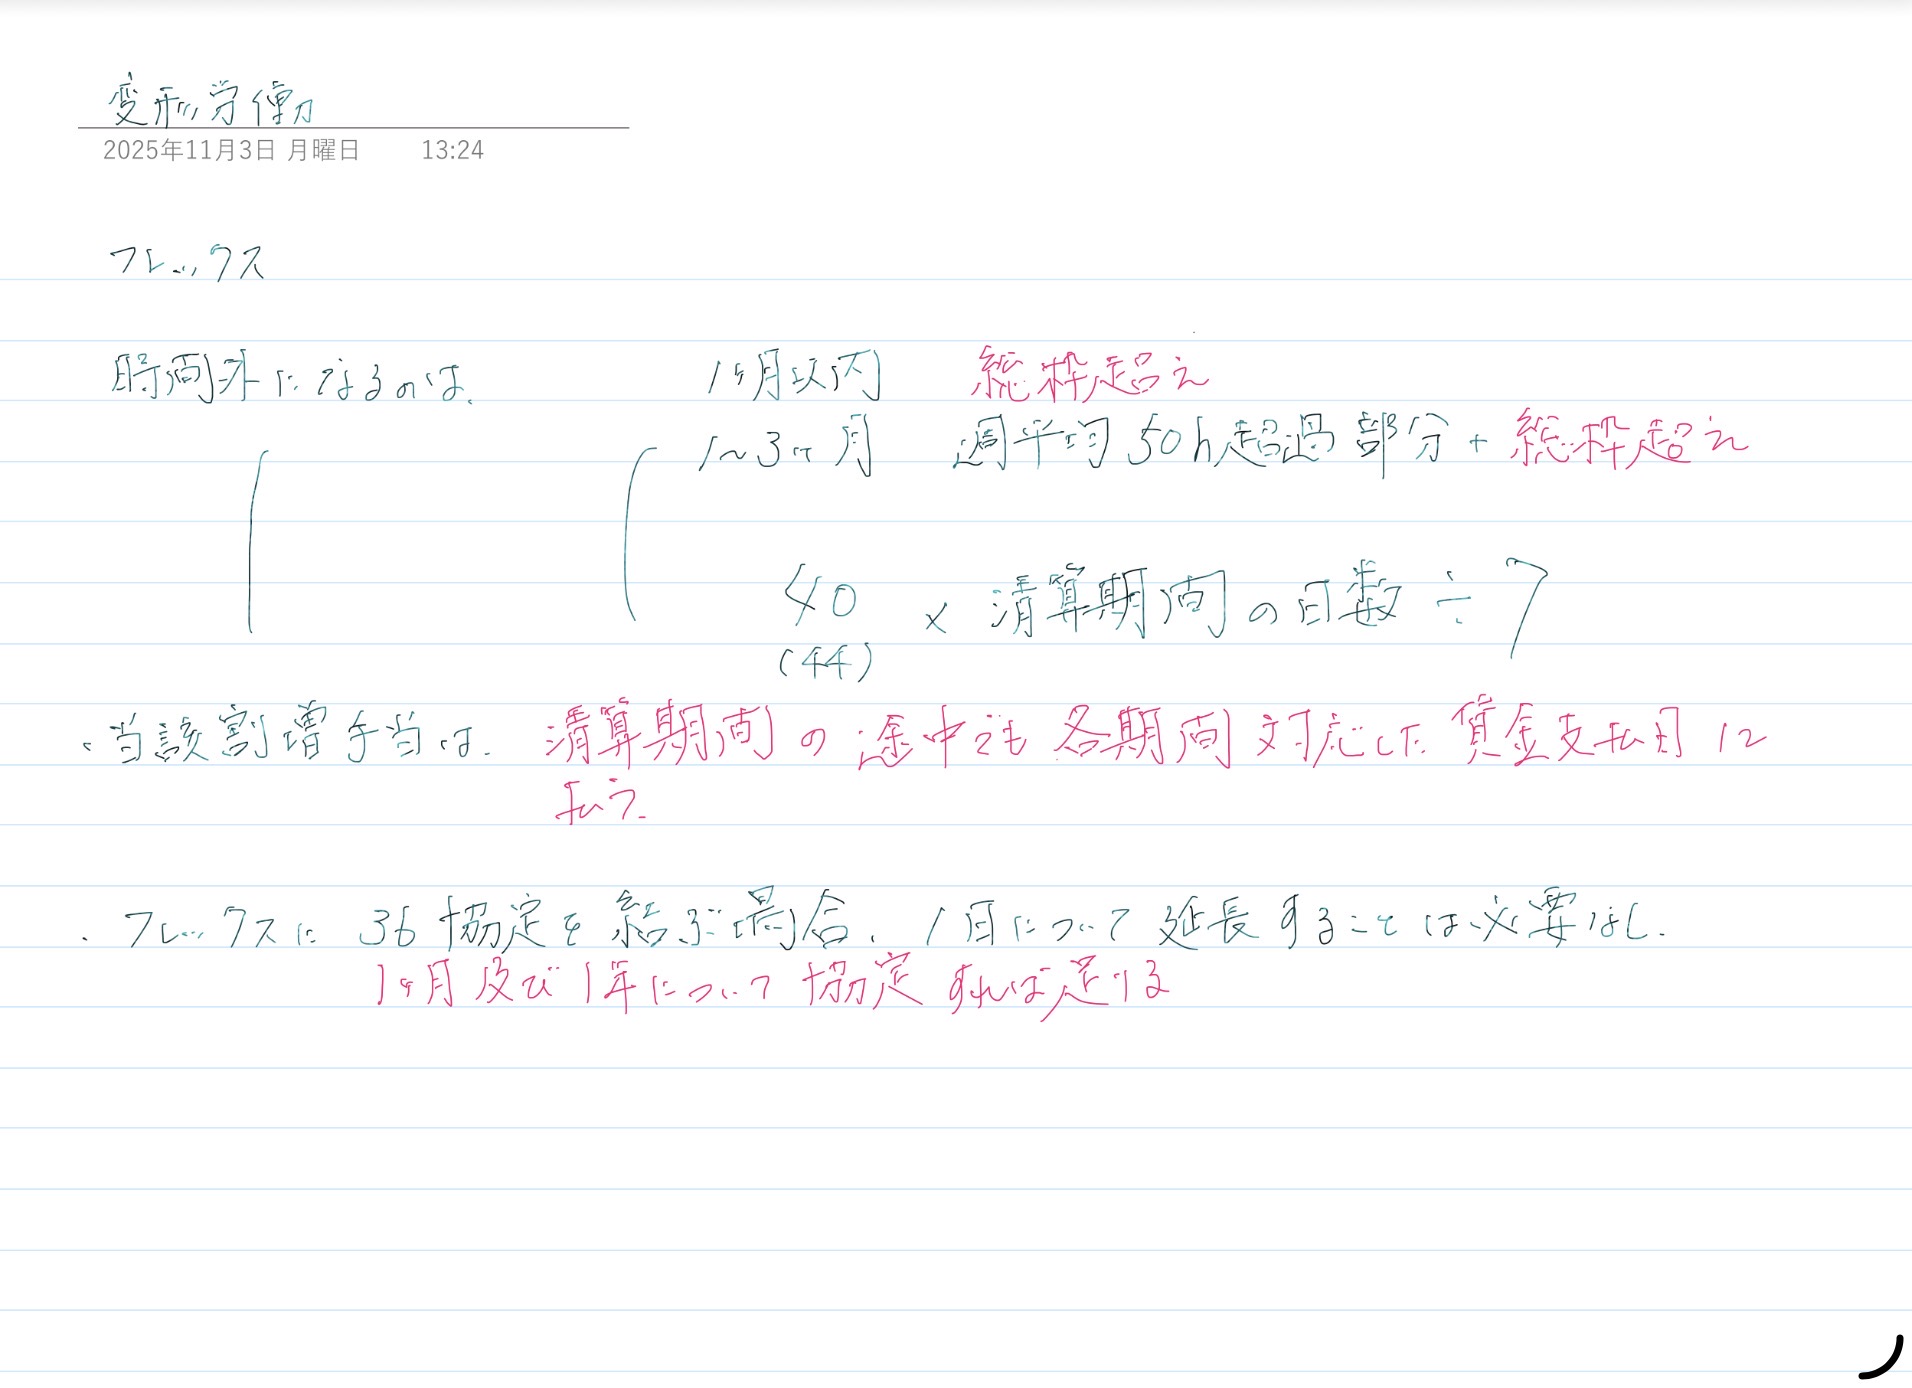 変形労働
2025年11月3日 月曜日 13:24
フレックス
時間外になるのは、 1ヶ月以内 総枠超え
1~3ヶ月 週平均50h超過部分+総枠超え
40 × 清算期間の日数 ÷ 7
(44)
・当該割増手当は、清算期間の途中でも各期間対応した賃金支払日に
払う。
・フレックスに36協定を結ぶ場合、1日について延長することは必要なし.
1ヶ月及び1年について協定すれば足りる